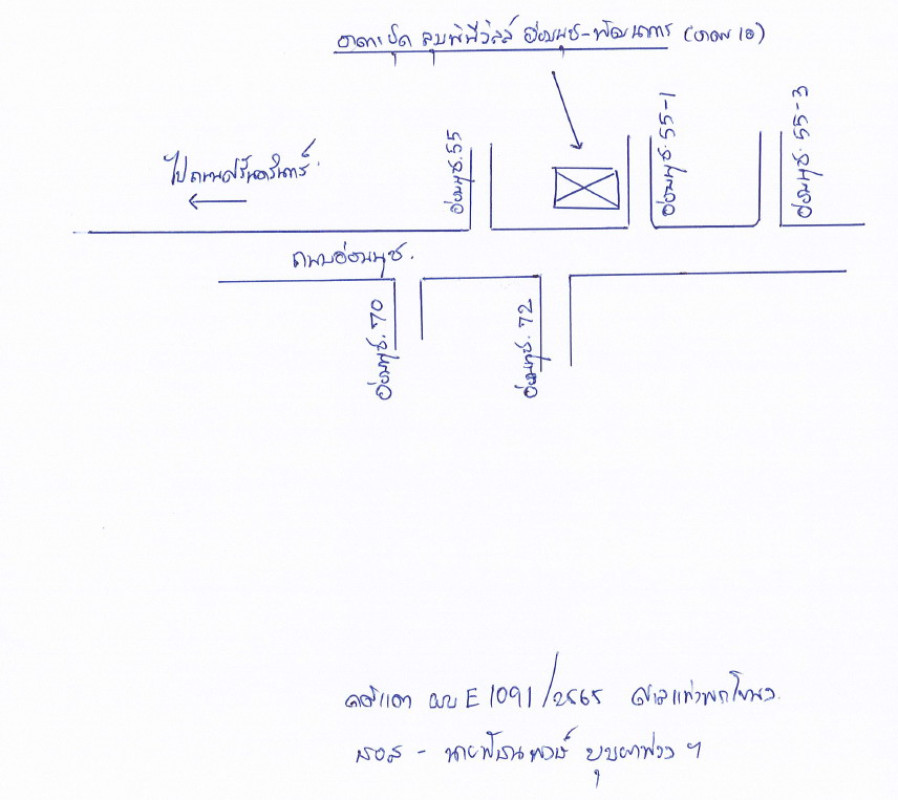 อาคารชุด ลุมพินีวิลล์ อ่อนนุช-พัฒนาการ (อาคาร
ไปถนนศรีนครินทร์
อ่อนนุช.55
อ่อนนุช.55-1
อ่อนนุช.55-3
ถนนอ่อนนุช.
อ่อนนุช.70
อ่อนนุช.72
คดีแดง ผบ E 1091/2565 ศาลแพ่งพระโขนง
นาย